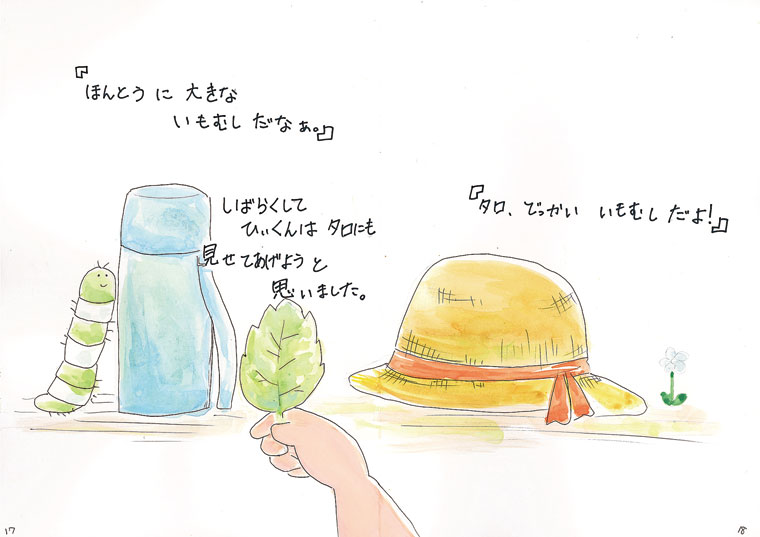 『ほんとうに 大きな
いもむし だなぁ。』
しばらくして
ひぃくんは タロにも
見せてあげようと
思いました。
『タロ、でっかい いもむし だよ!』
17
18